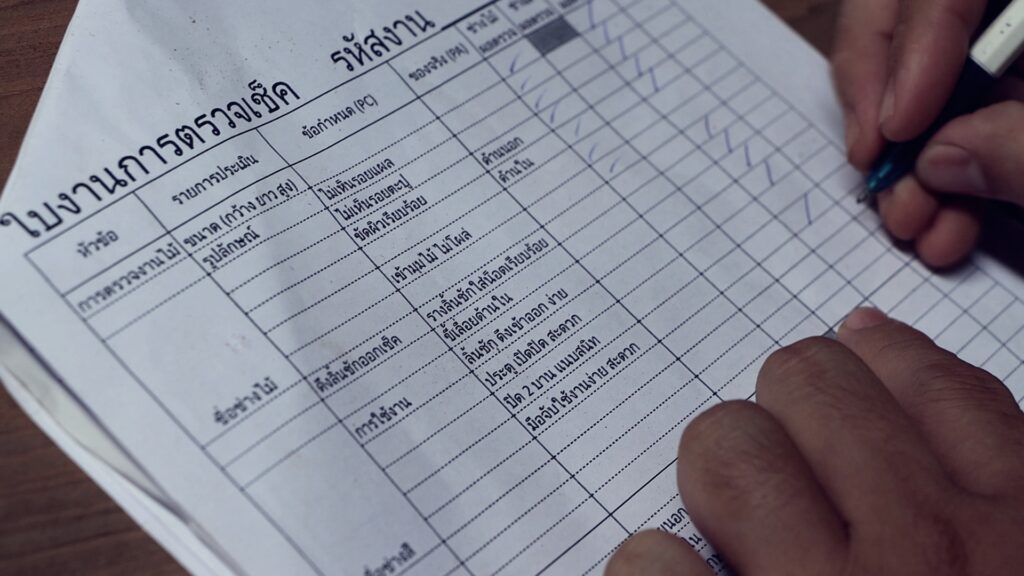 ใบงานการตรวจเช็ค รหัสงาน
หัวข้อ รายการประเมิน ข้อกำหนด (PC) ของจริง (PA) ช่างไม้
ผลตรวจ ผลตรวจ
การตรวจงานไม้ ขนาด (กว้าง ยาว สูง)
รูปลักษณ์ ไม่เห็นรอยแผล ด้านนอก
ไม่เห็นรอยตะปู ด้านใน
ขัดผิวเรียบร้อย
เข้ามุมไม้ ไม่โผล่
ชื่อช่างไม้ ดึงลิ้นชักออกเช็ค รางลิ้นชักใส่น็อตเรียบร้อย
ขี้เลื่อยด้านใน
การใช้งาน ลิ้นชัก ดึงเข้าออก ง่าย
ประตู เปิดปิด สะดวก
ปิด 2 บาน แนบสนิท
มือจับใช้งานง่าย สะดวก
ชื่อช่างสี